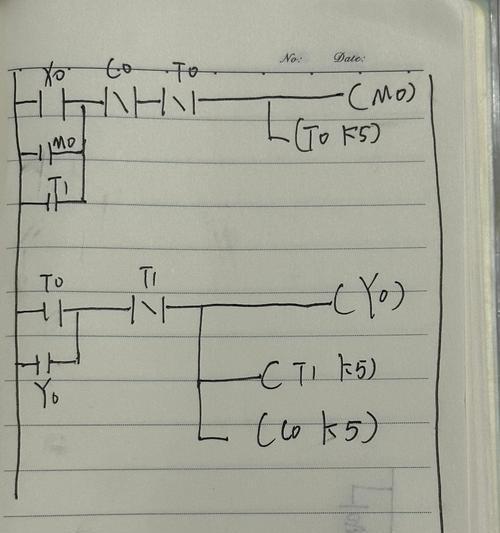 No: Date:
X0 C0 T0
(M0)
(T0 K5)
M0
T1
T0 T1
(Y0)
Y0
(T1 K5)
(C0 K5)